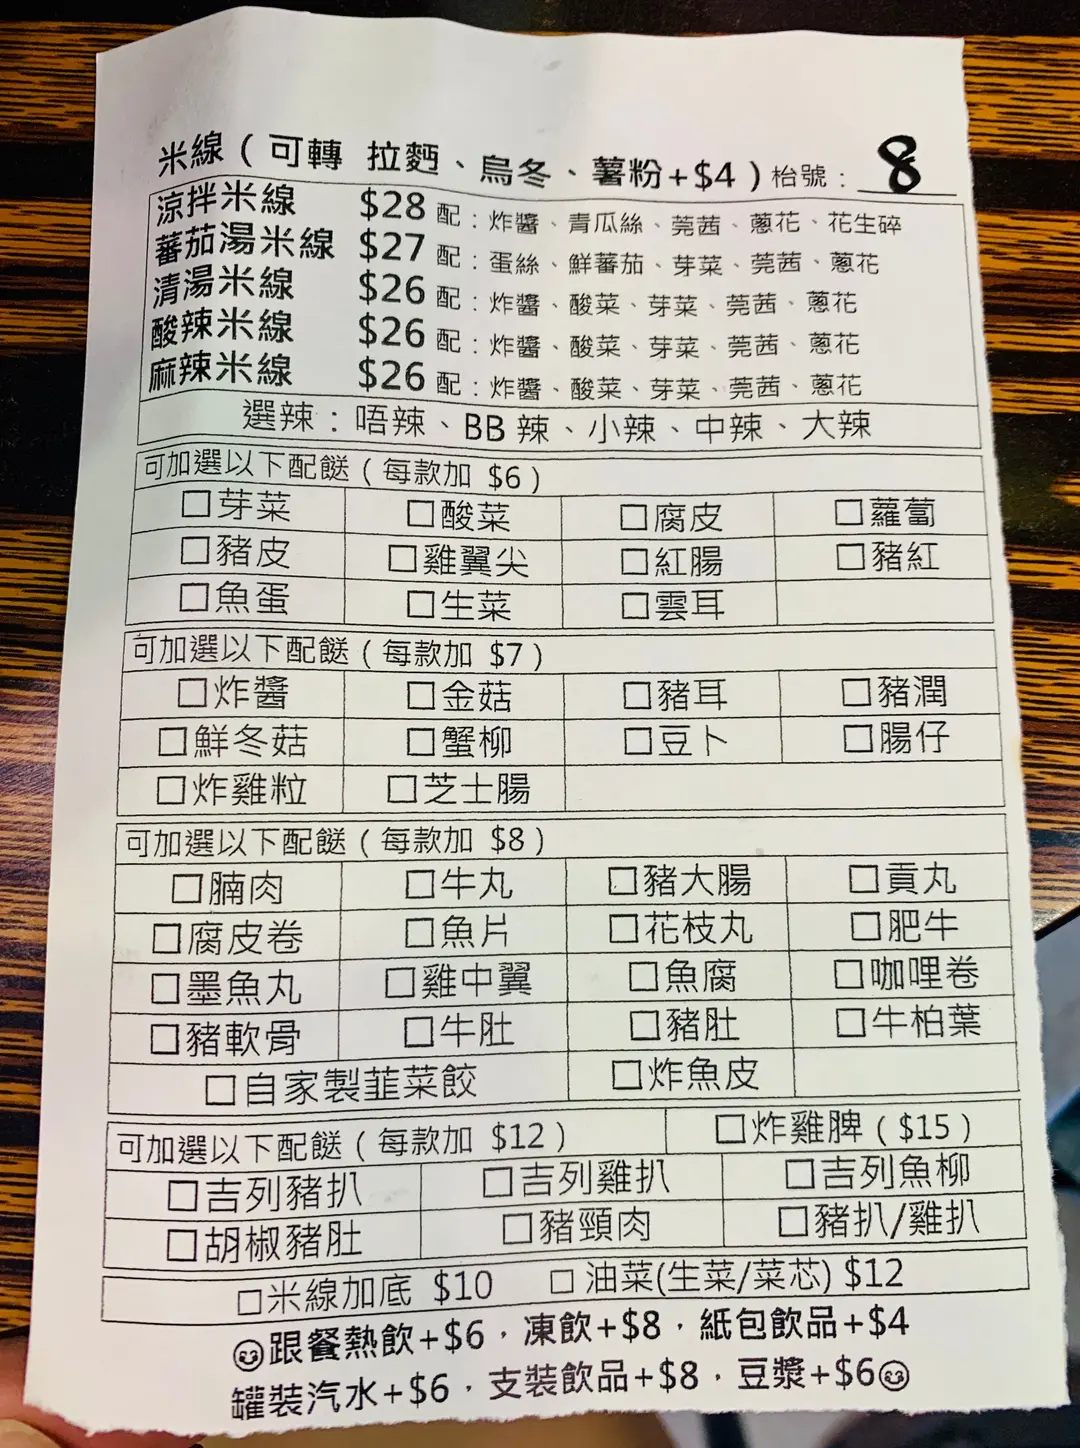 米線(可轉 拉麪、烏冬、薯粉+$4)枱號: 8
涼拌米線 $28 配:炸醬、青瓜絲、莞茜、蔥花、花生碎
蕃茄湯米線 $27 配:蛋絲、鮮蕃茄、芽菜、莞茜、蔥花
清湯米線 $26 配:炸醬、酸菜、芽菜、莞茜、蔥花
酸辣米線 $26 配:炸醬、酸菜、芽菜、莞茜、蔥花
麻辣米線 $26 配:炸醬、酸菜、芽菜、莞茜、蔥花
選辣:唔辣、BB 辣、小辣、中辣、大辣
可加選以下配餸(每款加 $6)
□芽菜 □酸菜 □腐皮 □蘿蔔
□豬皮 □雞翼尖 □紅腸 □豬紅
□魚蛋 □生菜 □雲耳
可加選以下配餸(每款加 $7)
□炸醬 □金菇 □豬耳 □豬潤
□鮮冬菇 □蟹柳 □豆卜 □腸仔
□炸雞粒 □芝士腸
可加選以下配餸(每款加 $8)
□腩肉 □牛丸 □豬大腸 □貢丸
□腐皮卷 □魚片 □花枝丸 □肥牛
□墨魚丸 □雞中翼 □魚腐 □咖哩卷
□豬軟骨 □牛肚 □豬肚 □牛柏葉
□自家製韮菜餃 □炸魚皮
可加選以下配餸(每款加 $12) □炸雞脾($15)
□吉列豬扒 □吉列雞扒 □吉列魚柳
□胡椒豬肚 □豬頸肉 □豬扒/雞扒
□米線加底 $10 □油菜(生菜/菜芯) $12
☺跟餐熱飲+$6,凍飲+$8,紙包飲品+$4
罐裝汽水+$6,支裝飲品+$8,豆漿+$6☺